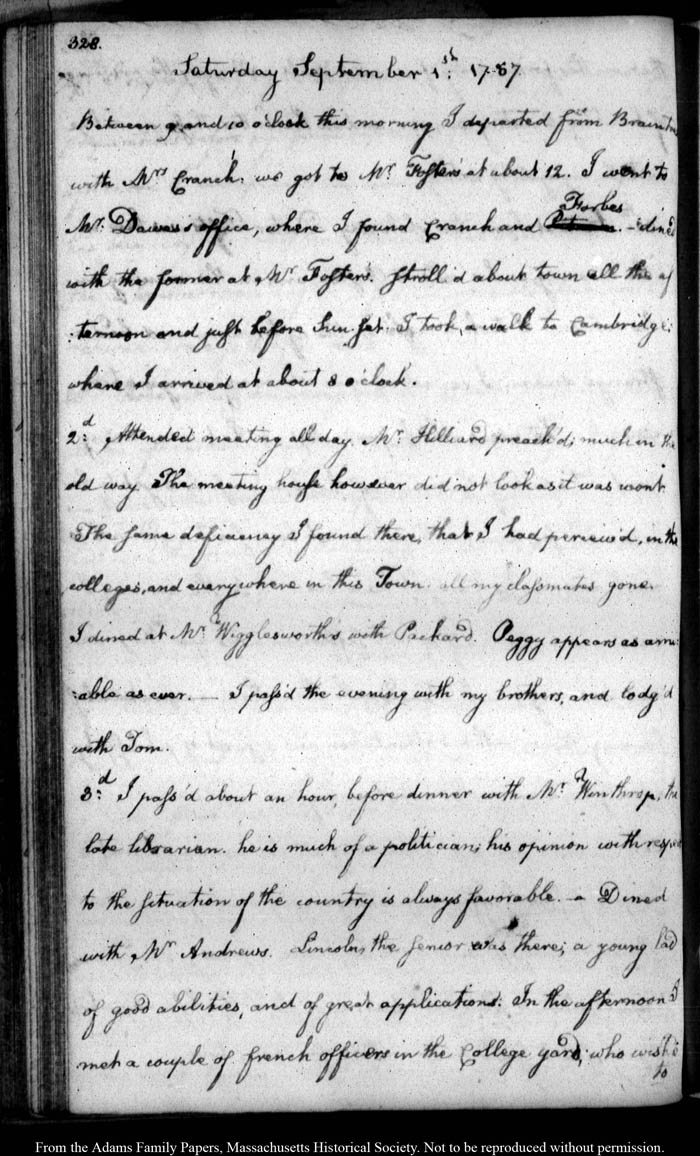 328.
Saturday September 1st: 1787.
Between 9. and 10 o'clock this morning I departed from Braintree
with Mrs Cranch. we got to Mr. Foster's at about 12. I went to
Mr: Dawes's office, where I found Cranch and Forbes. — dined
with the former at Mr Foster's. stroll'd about town all the af
:ternoon and just before Sun, set. I took, a walk to Cambridge:
where I arrived at about 8 o'clock.
2d: Attended meeting all day. Mr. Hilliard preach'd; much in the
old way. The meeting house however did not look as it was wont.
The same deficiency I found there, that I had perceiv'd, in the
colleges, and every where in this Town. all my classmates gone.
I dined at Mr. Wigglesworth's with Packard. Peggy appears as ami:
:able as ever. — I pass'd the evening with my brothers, and lodg'd
with Tom.
3d: I pass'd about an hour, before dinner with Mr. Winthrop, the
late librarian. he is much of a politician; his opinion with respect
to the situation of the country is always favorable. — Dined
with Mr Andrews. Lincoln, the senior was there; a young lad
of good abilities, and of great application: In the afternoon I
met a couple of french officers in the College yard; who wish'd
to
From the Adams Family Papers, Massachusetts Historical Society. Not to be reproduced without permission.